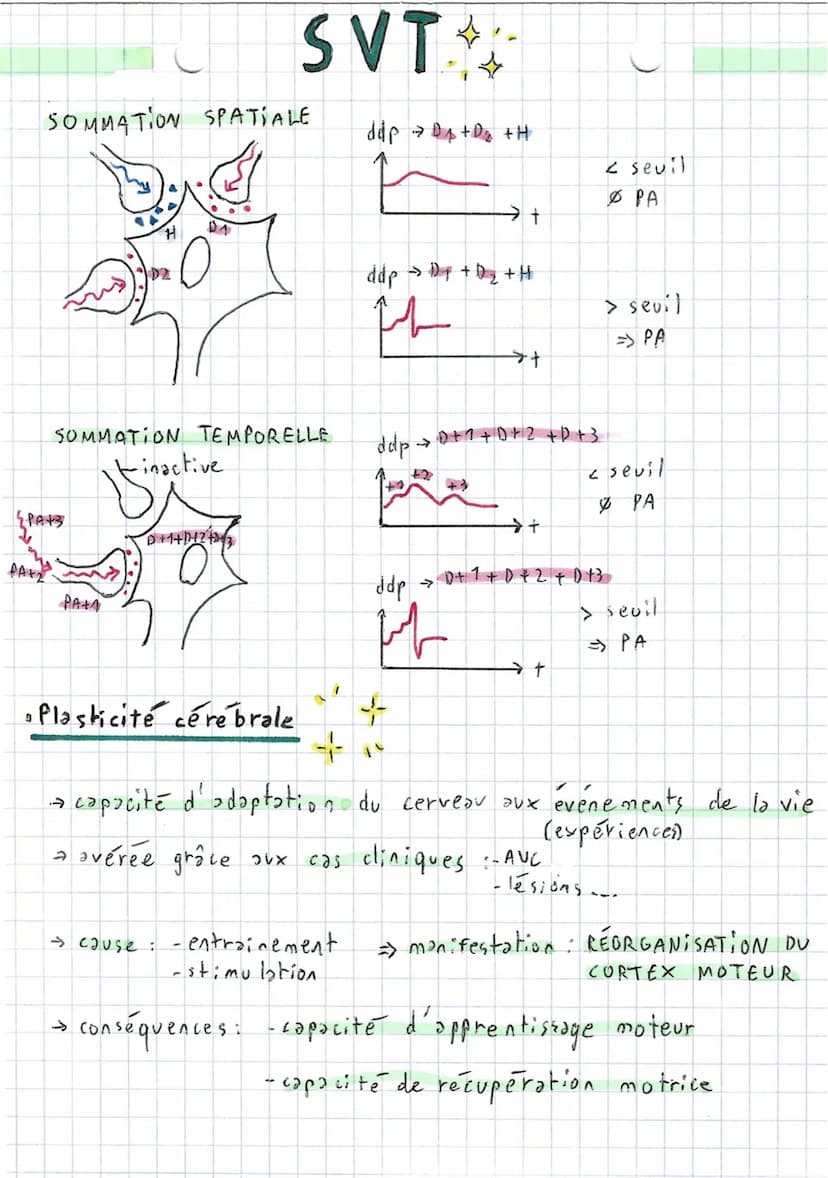 SVT
SOMMATION SPATIALE
ddp → D1 + D2 + H
< seuil
Ø PA
t
H
D1
D2
ddp → D1 + D2 + H
> seuil
⇒ PA
t
SOMMATION TEMPORELLE
inactive
ddp → D+1 + D+2 + D+3
+1 +2 +3
< seuil
Ø PA
t
PA+3
D+1+D+2+D+3
PA+2
PA+1
ddp → D+1 + D+2 + D+3
> seuil
⇒ PA
t
. Plasticité cérébrale
→ capacité d'adaptation du cerveau aux événements de la vie
(expériences)
→ avérée grâce aux cas cliniques : - AVC
- lésions ...
→ cause : - entrainement ⇒ manifestation : RÉORGANISATION DU
- stimulation CORTEX MOTEUR
→ conséquences : - capacité d'apprentissage moteur
- capacité de récupération motrice